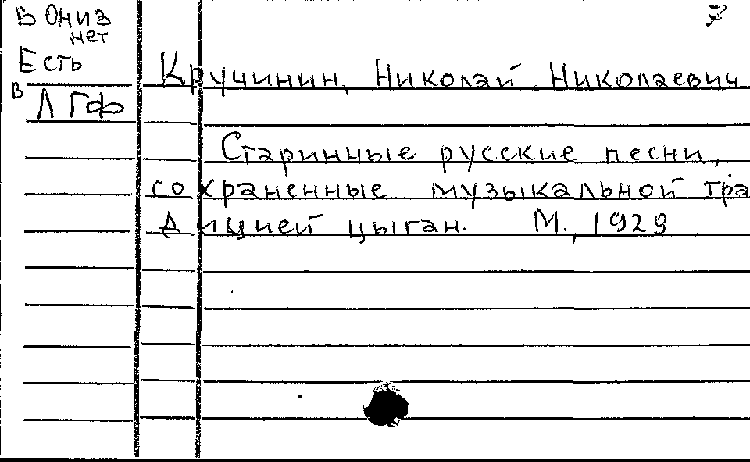 В Ониз
нет
Есть
в
ЛГФ
Кручинин, Николай Николаевич
Старинные русские песни,
сохраненные музыкальной тра
дицией цыган. М., 1929